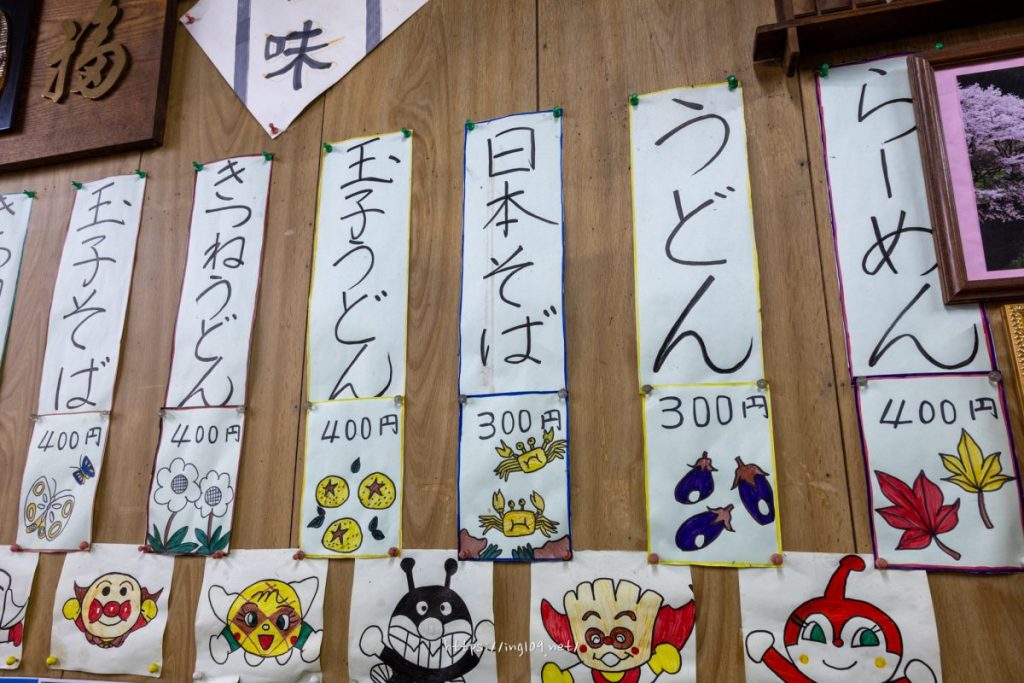 福
味
らーめん
400円
うどん
300円
日本そば
300円
玉子うどん
400円
きつねうどん
400円
玉子そば
400円
きつ
https://ing109.net/